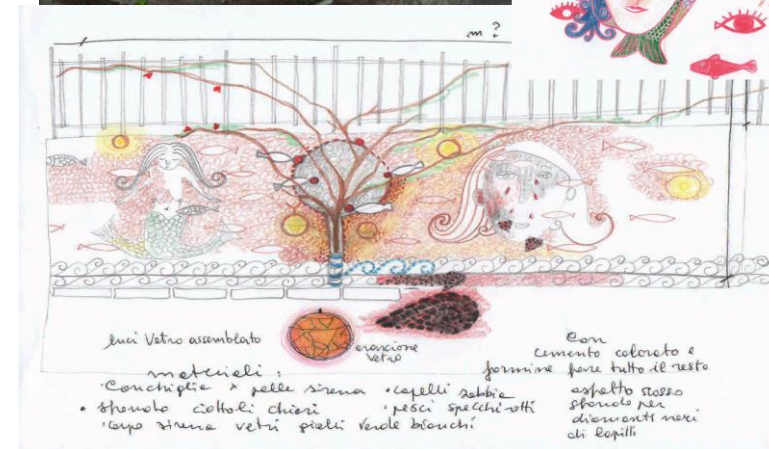 m ?
luci Vetro assemblato
arancione
vetro
materiali :
· Conchiglie x pelle sirena
· capelli sabbia
• sfondo ciottoli chiari
· pesci specchi rotti
· corpo sirena vetri gialli verde bianchi
Con
cemento colorato e
formine fare tutto il resto
aspetto rosso
sfondo per
diamanti neri
di lapilli